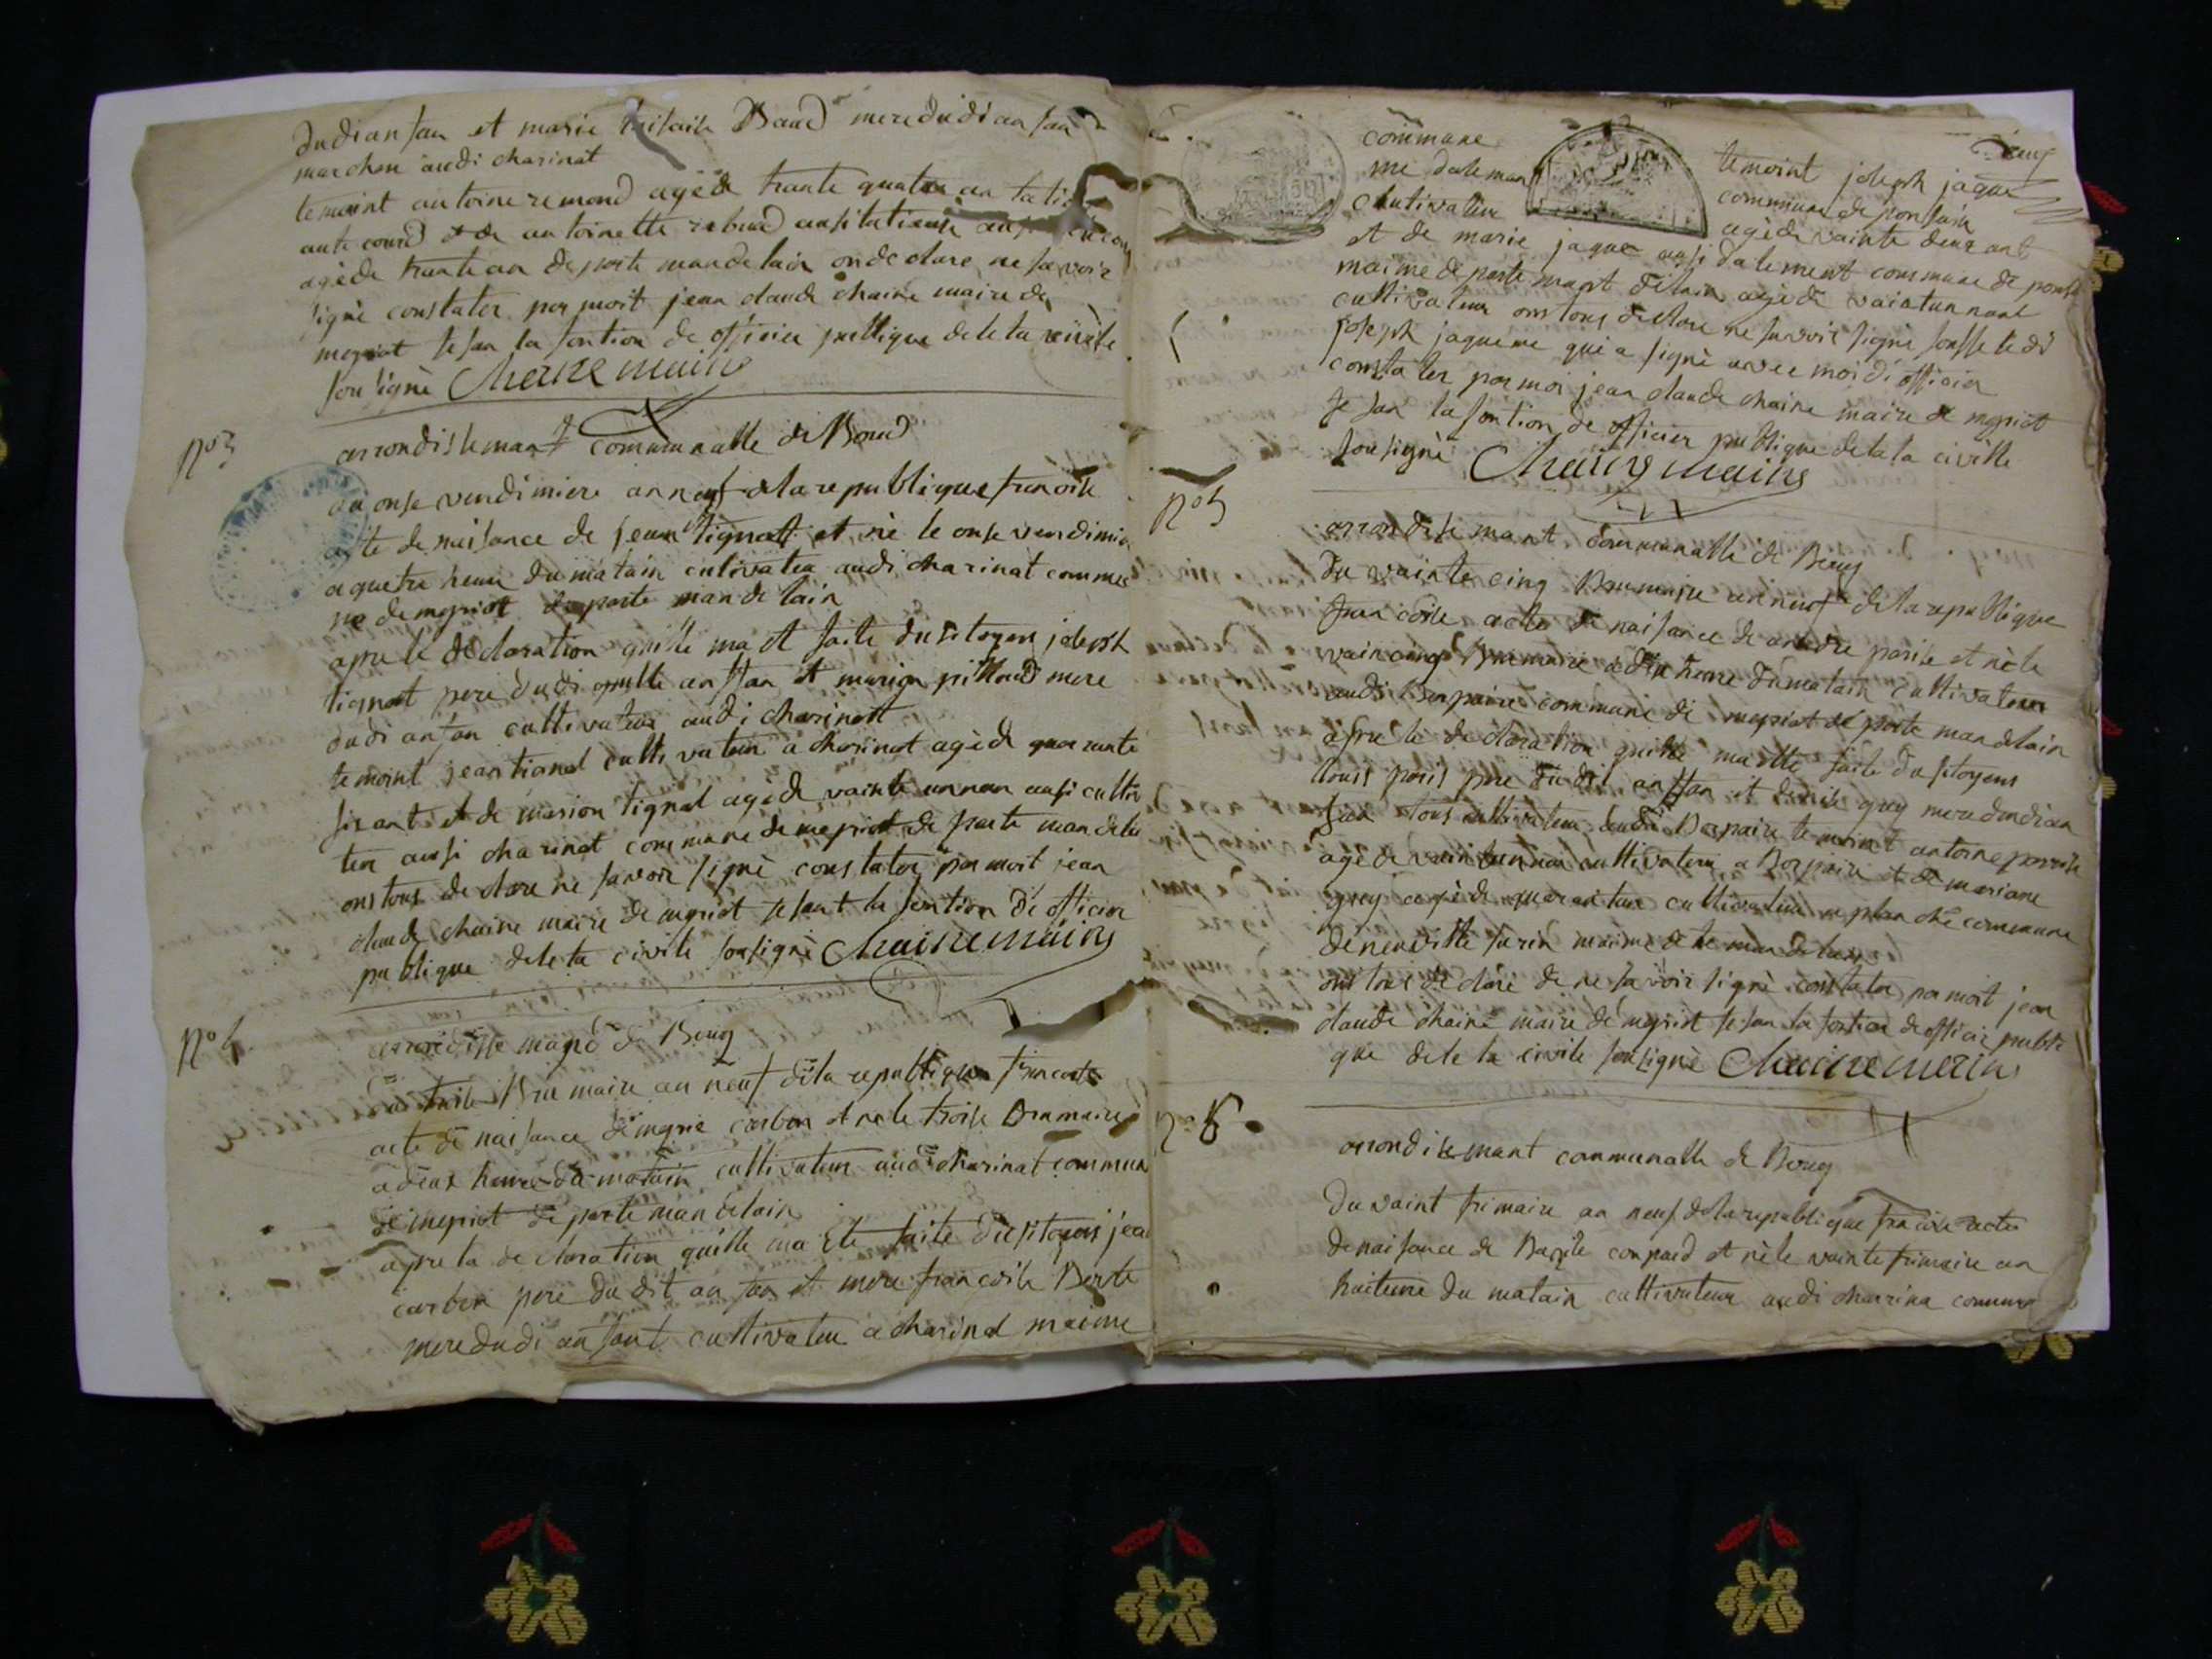 dudi an fan et marie Baud mere dudi an fan
marchon audi charinat
temoint antoine remond agè de trante quatre an
et de antoinette rebaud
agède trante an de parte man de lain on declare ne savoir
signè constater par moit jean claude chaine maire de
mepriat fesan la fontion de officier publique de leta civile
sousignè Chaine maire
no 3
arrondisseman communalle de Bourd
du onse vendimiere an neuf de la republique francoise
acte de naisance de jean tignat et nè le onse vendimier
a quatre heure du matain cultivateu audi charinat commu
ne de mepriat de parte man de lain
apre le declaration quille ma et faite du sitoyen joleph
tignat pere dudi an fan et marion pilloud mere
dudi anfan cultivateur audi charinat
temoint jean tignal culti vateur a charinat agède quarante
sis ant et de marion tignat agède vainte un nan ausi cultiva
teu ausi charinat commune de mepriat de parte man de lai
ons tous de clare ne savoir signè constater par moit jean
claude chaine maire de mepriat fesant la fontion de officier
publique de leta civile sousignè Chaine maire
no 4
arrondisse mand de Bourg
du troise Bru maire an neuf de la republique francoise
acte de naisance de carbon et nè le troise Brumaire
a deux heure du matain cultivateur audi charinat commun
de mepriat de parte man de lain
apre la declaration quille ma ete faite du sitoyens jean
carbon pere du dit an fan et mere francoise Berte
mere dudi an fant cultivateu a charinat maime
neuf
commune temoint joleph jaque
me daleman commune de ponsain
cultivateu agède vainte deux ant
et de marie jaque ausi dalement commune de ponsai
maime de parte mant de lain agè de vaintun nant
cultivateur ons tous declare ne savoir signè
joseph jaqueme qui a signè avec moi di officier
constater par moi jean claude chaine maire de mepriat
fe san la fontion de officier publique de leta civille
sousignè Chaine maire
no 5
arrondisse mant communalle de Bourg
du vainte cinq Brumaire an neuf de la republique
fran coise acte de naisance de andre parise et nè le
vaincinq Brumaire a dix heure du matain cultivateur
audi Borpaire commune de mepriat de parte man de lain
apre le declaration quille ma ette faite du sitoyens
louis paris pere du dit an fan et denise grey mere dudi an
fan tous cultivateur audi Borpaire temoint antoine parrise
agè de vaintunnan cultivateur a Borpaire et de mariane
grey agè de quarantun cultivateur a planche commune
de neuville surin maime de te man de lain
ons tous de clare de ne savoir signè constater par moit jean
claude chaine maire de mepriat fe san la fontion de officie publi
que de leta civile sousignè Chaine maire
no 6
arrondisemant communalle de Bourg
Du vaint frimaire an neuf de la republique francoise acte
de naisance de Basile compard et nè le vainte frimaire an
huiteure du matain cultivateur audi charina commune